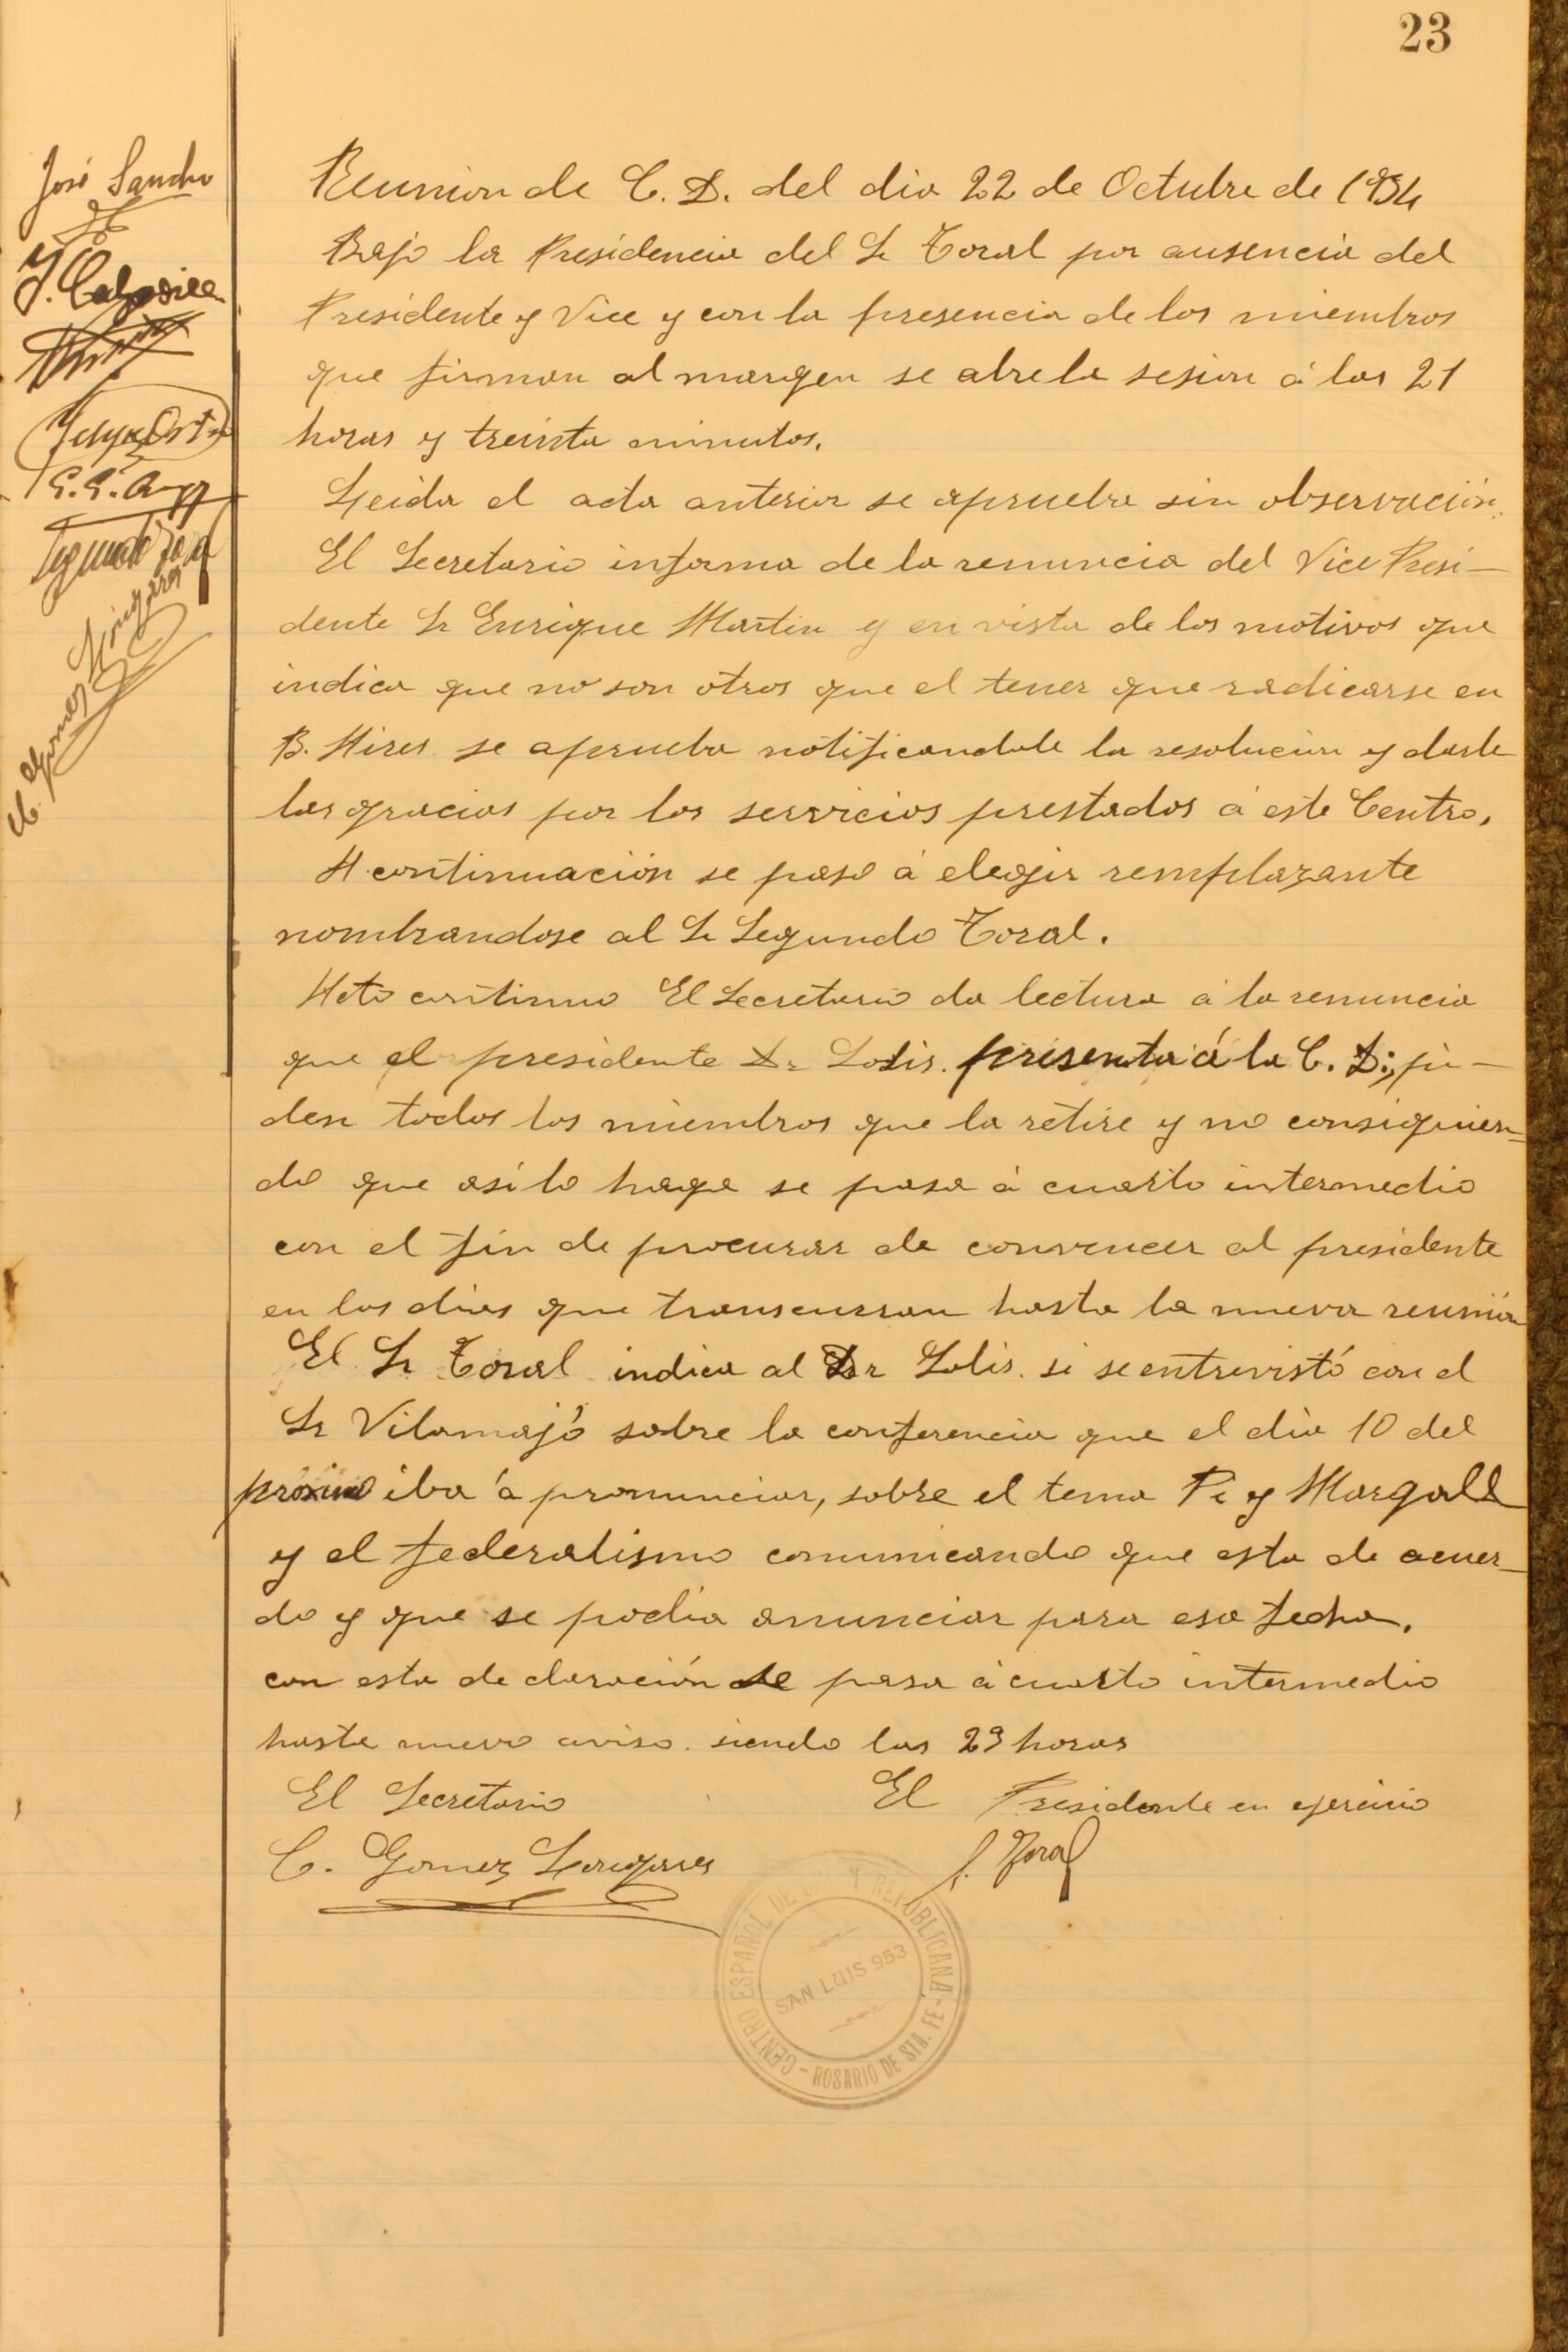 23
José Sancho
Reunion de C. D. del dia 22 de Octubre de 1934
Bajo la Presidencia del Sr Toral por ausencia del
Presidente y Vice y con la presencia de los miembros
que firman al margen se abre la sesion á las 21
horas y treinta minutos.
Leida el acta anterior se aprueba sin observación.
El Secretario informa de la renuncia del Vice Presi-
dente Sr Enrique Martin y en vista de los motivos que
indica que no son otros que el tener que radicarse en
B. Aires se aprueba notificandole la resolucion y darle
las gracias por los servicios prestados á este Centro.
A continuación se paso á elegir remplazante
nombrandose al Sr Segundo Toral.
Acto continuo El Secretario da lectura á la renuncia
que el presidente Dr Solis. presenta á la C. D; pi-
den todos los miembros que la retire y no consiguien=
do que asi lo haga se pasa á cuarto intermedio
con el fin de procurar de convencer al presidente
en los dias que transcurran hasta la nueva reunión
El Sr Toral indica al Dr Solis. si se entrevistó con el
Sr Vilamajó sobre la conferencia que el dia 10 del
próximo iba á pronunciar, sobre el tema Pi y Margall
y el federalismo comunicando que esta de acuer-
do y que se podia anunciar para esa fecha.
con esta declaración se pasa á cuarto intermedio
hasta nuevo aviso. siendo las 23 horas
El Secretario El Presidente en ejercicio
C. Gomez S. Toral
CENTRO ESPAÑOL DE Y REPUBLICANA - ROSARIO DE STA. FE -
SAN LUIS 953